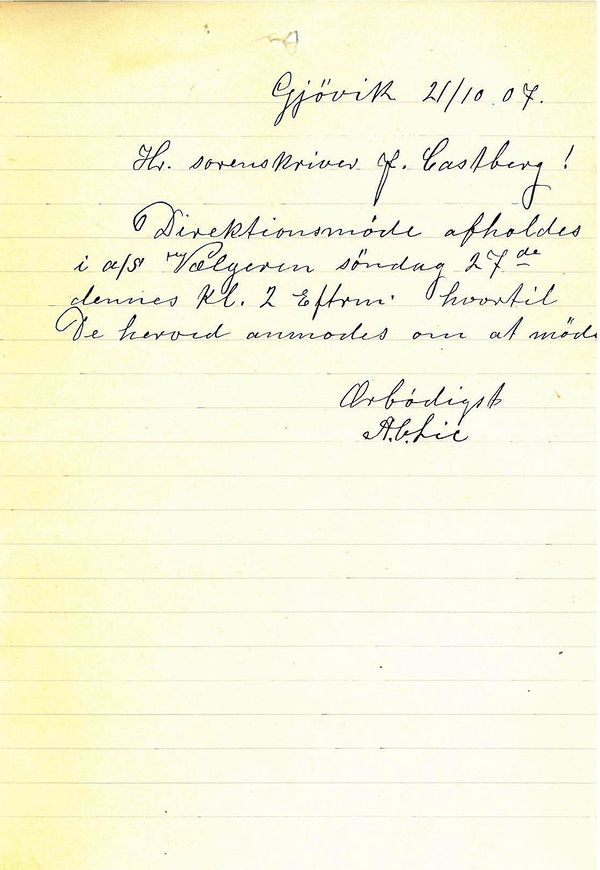 Gjövik 21/10 07.
Hr. sorenskriver J. Castberg!
Direktionsmøde afholdes
i a/s Vælgeren söndag 27de
dennes kl. 2 Eftrm. hvortil
De herved anmodes om at møde
Ærbødigst
A. C. Lie